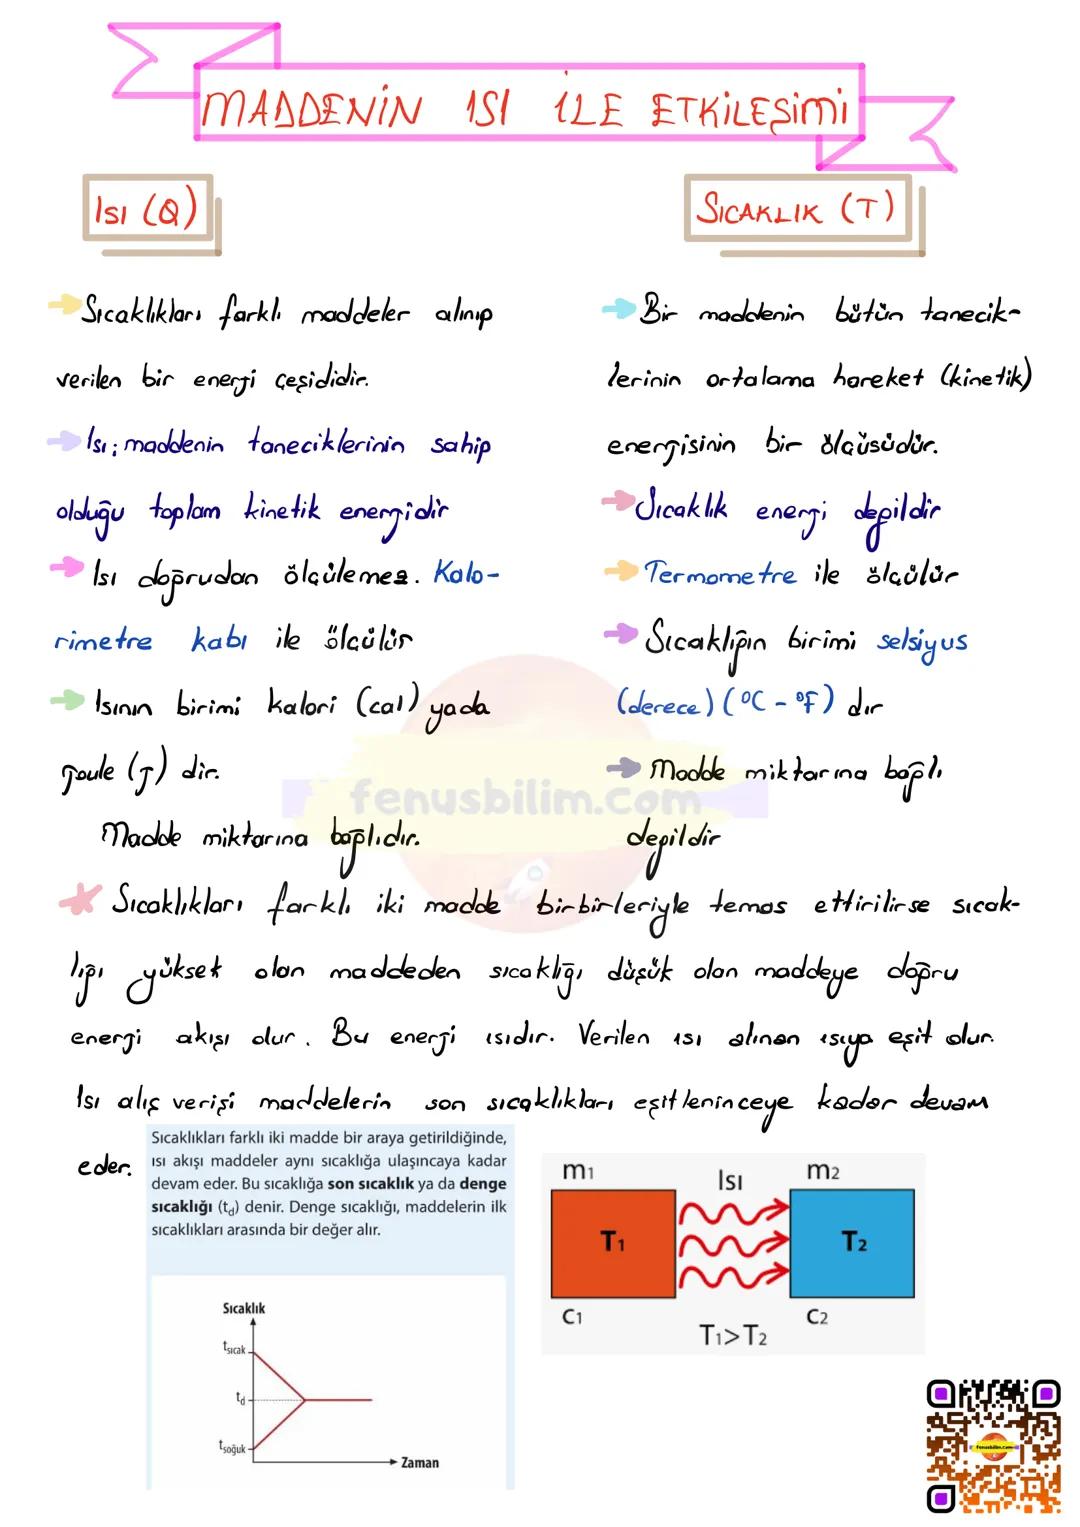 MADDENİN ISI İLE ETKİLEŞİMİ
ISI (Q)
Sıcaklıkları farklı maddeler alınıp
verilen bir enerji çeşididir.
Isı; maddenin taneciklerinin sahip
olduğu toplam kinetik enerjidir
Isı doğrudan ölçülemez. Kalo-
rimetre kabı ile ölçülür
Isının birimi kalori (cal) yada
joule (J) dir.
Madde miktarına bağlıdır.
SICAKLIK (T)
Bir maddenin bütün tanecik-
lerinin ortalama hareket (kinetik)
enerjisinin bir ölçüsüdür.
Sıcaklık enerji değildir
Termometre ile ölçülür
Sıcaklığın birimi selsiyus
(derece) (°C - °F) dır
Madde miktarına bağlı
değildir
fenusbilim.com
Sıcaklıkları farklı iki madde birbirleriyle temas ettirilirse sıcak-
lığı yüksek olan maddeden sıcaklığı düşük olan maddeye doğru
enerji akışı olur. Bu enerji ısıdır. Verilen ısı alınan ısıya eşit olur.
Isı alış verişi maddelerin son sıcaklıkları eşitleninceye kadar devam
eder.
Sıcaklıkları farklı iki madde bir araya getirildiğinde,
ısı akışı maddeler aynı sıcaklığa ulaşıncaya kadar
devam eder. Bu sıcaklığa son sıcaklık ya da denge
sıcaklığı (td) denir. Denge sıcaklığı, maddelerin ilk
sıcaklıkları arasında bir değer alır.
Sıcaklık
tsıcak
td
tsoğuk
Zaman
m1 Isı m2
T1 T2
C1 C2
T1>T2
fenusbilim.com